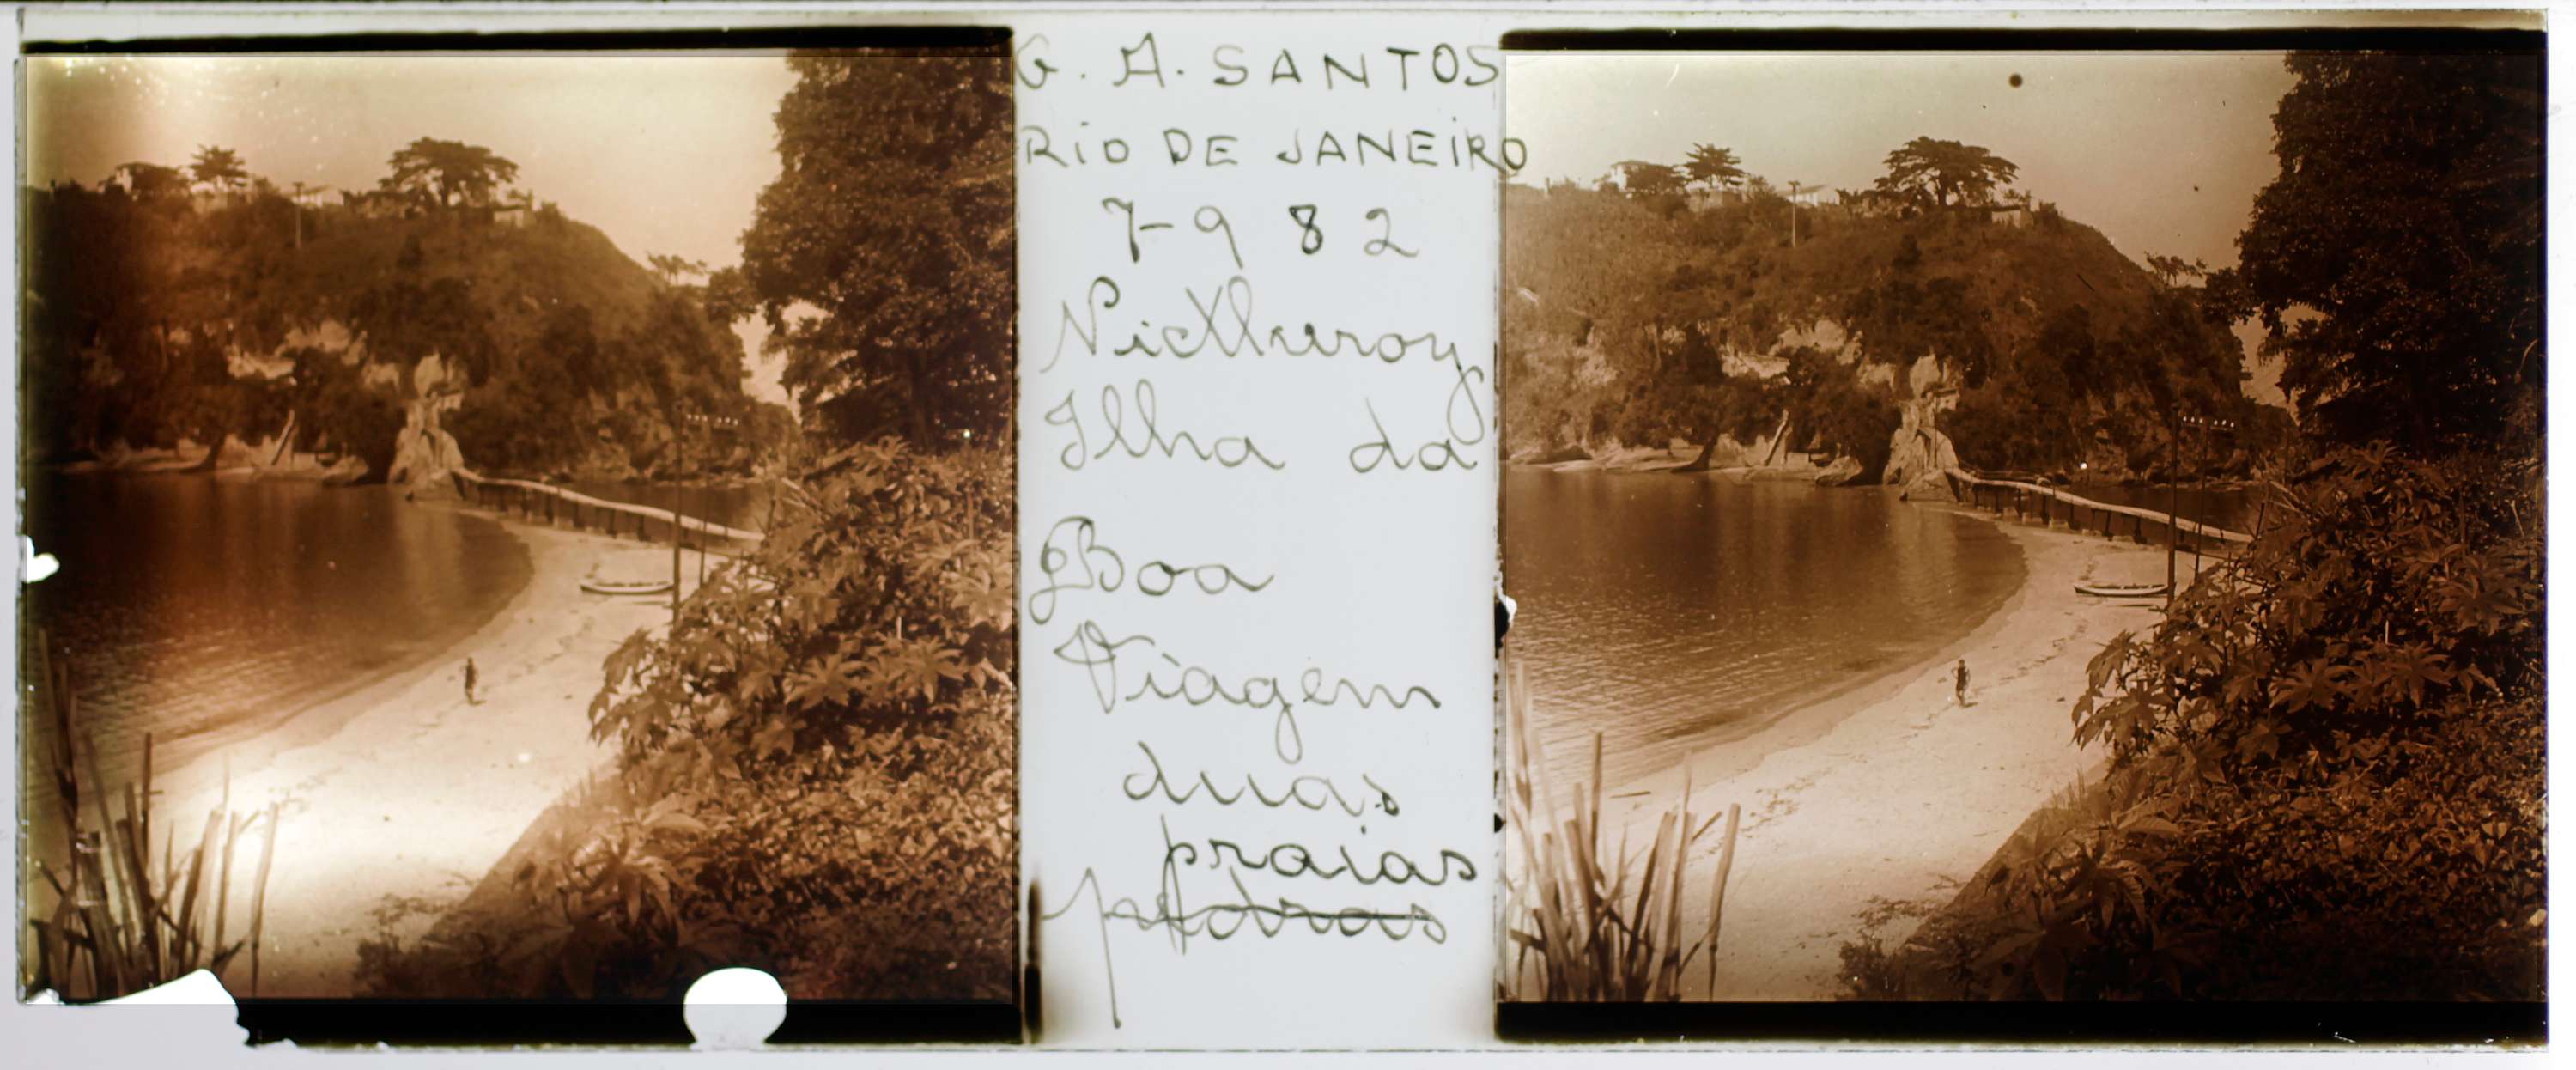 G. A. SANTOS
RIO DE JANEIRO
7-9 82
Nictheroy
Ilha da
Boa
Viagem
duas
praias